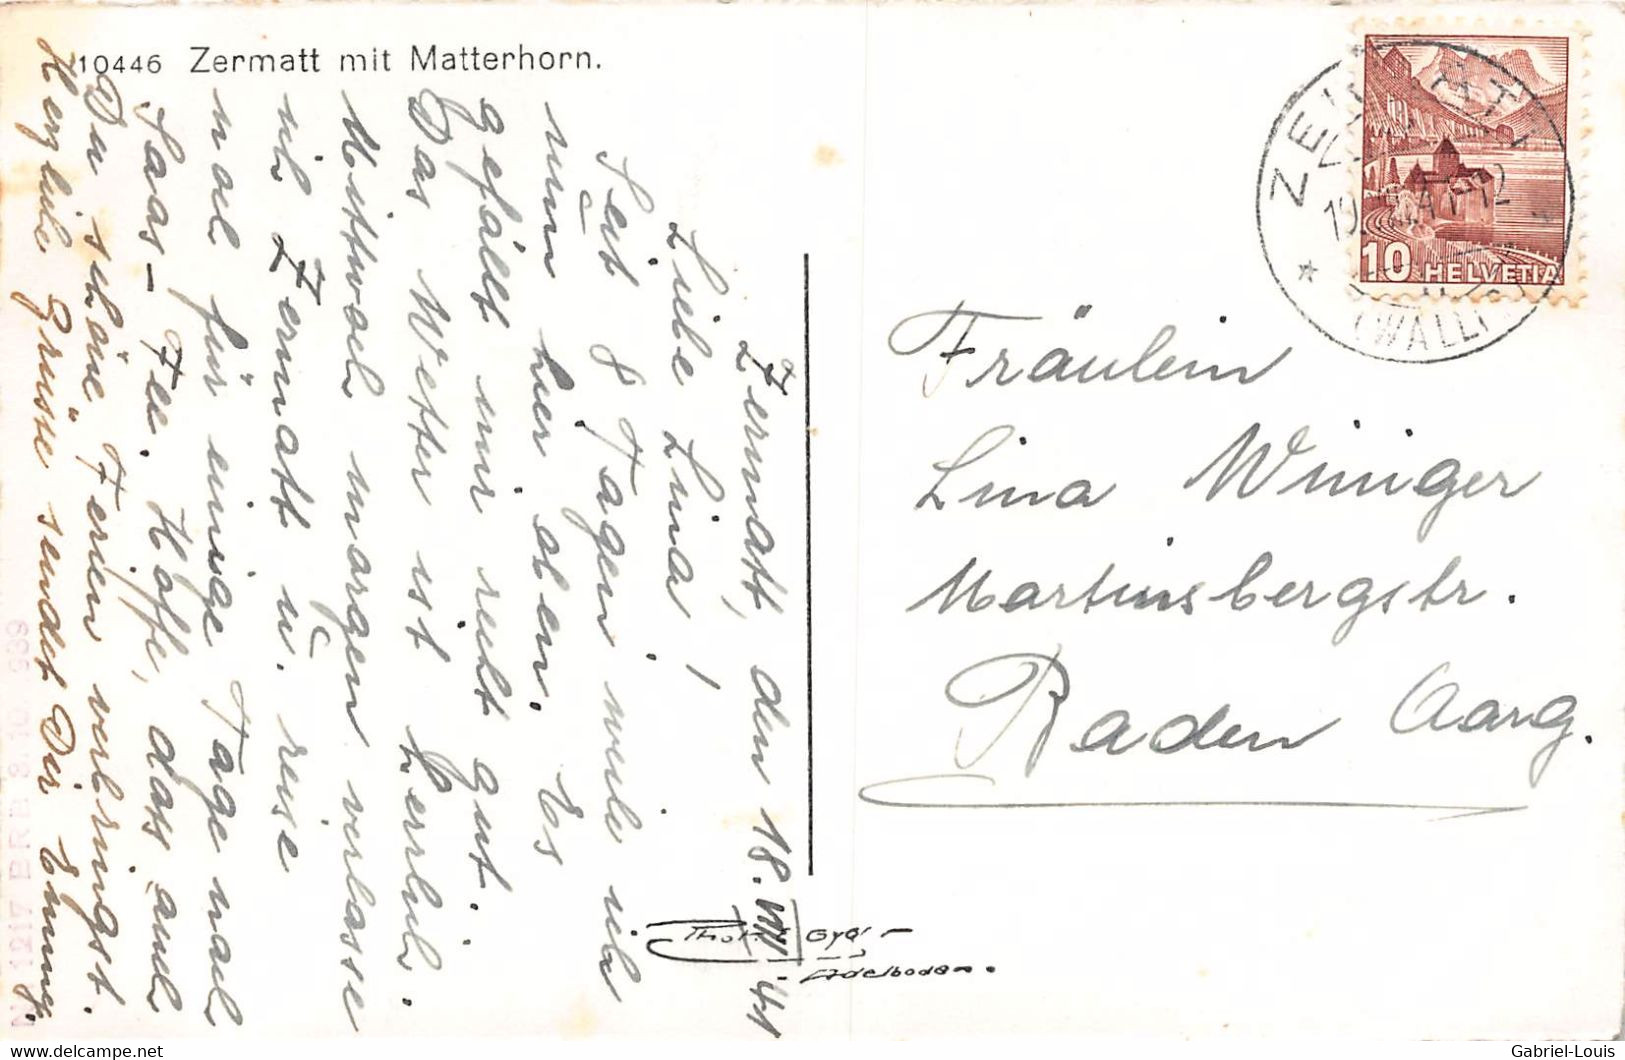 10446 Zermatt mit Matterhorn.
Zermatt, den 18. VIII. 41
Liebe Lina!
Seit 8 Tagen weile ich
nun hier oben. Es
gefällt mir recht gut.
Das Wetter ist herrlich.
Mittwoch morgen verlasse
ich Zermatt u. reise
noch für einige Tage nach
Saas-Fee. Hoffe, dass auch
Du schöne Ferien verbringst.
Herzliche Grüsse sendet Dir Emmy.
Gyger
Adelboden.
ZERMATT
(WALLIS)
10 HELVETIA
Fräulein
Lina Winiger
Martinsbergstr.
Baden Aarg.
N° 1217 BRB 3.10.939
Gabriel-Louis
www.delcampe.net